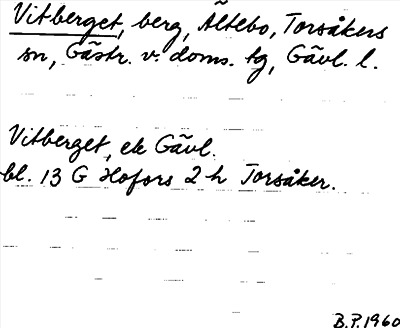 Vitberget, berg, Ältebo, Torsåkers
sn, Gästr. v. doms. tg, Gävl. l.
Vitberget, ek Gävl.
bl. 13 G Hofors 2 h Torsåker.
B.P. 1960